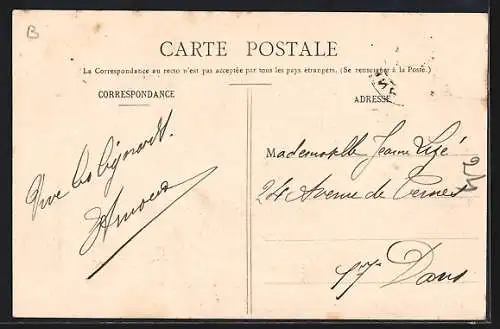 B
CARTE POSTALE
La Correspondance au recto n'est pas acceptée par tous les pays étrangers. (Se renseigner à la Poste.)
CORRESPONDANCE
ADRESSE
Vive les
Mademoiselle Jeanne
24 Avenue de Ternes
17e Paris